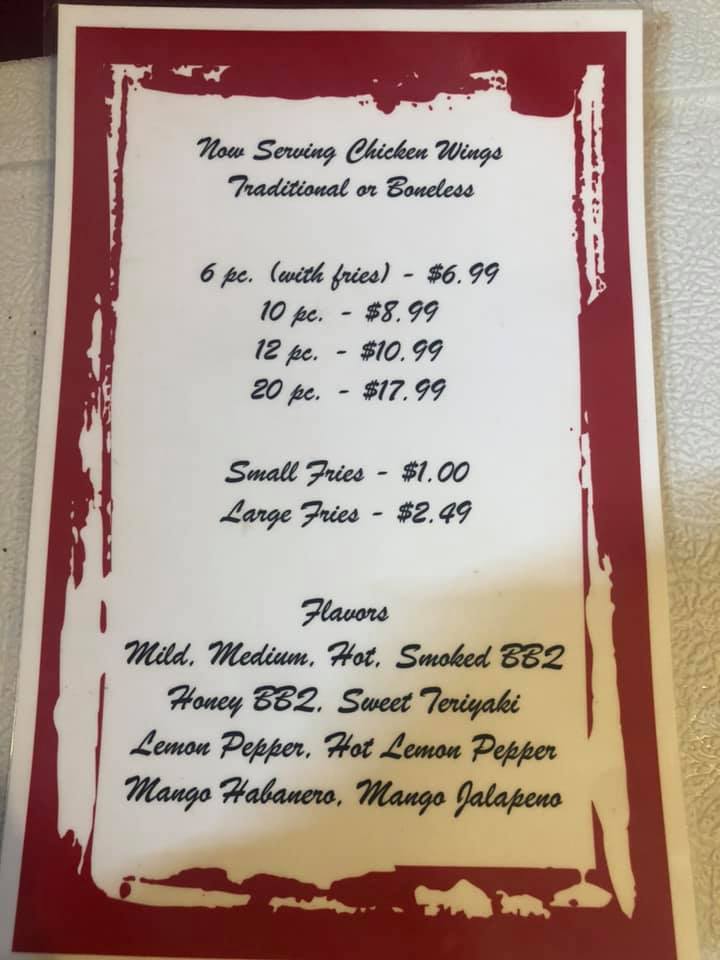 Now Serving Chicken Wings
Traditional or Boneless
6 pc. (with fries) - $6.99
10 pc. - $8.99
12 pc. - $10.99
20 pc. - $17.99
Small Fries - $1.00
Large Fries - $2.49
Flavors
Mild, Medium, Hot, Smoked BBQ
Honey BBQ, Sweet Teriyaki
Lemon Pepper, Hot Lemon Pepper
Mango Habanero, Mango Jalapeno